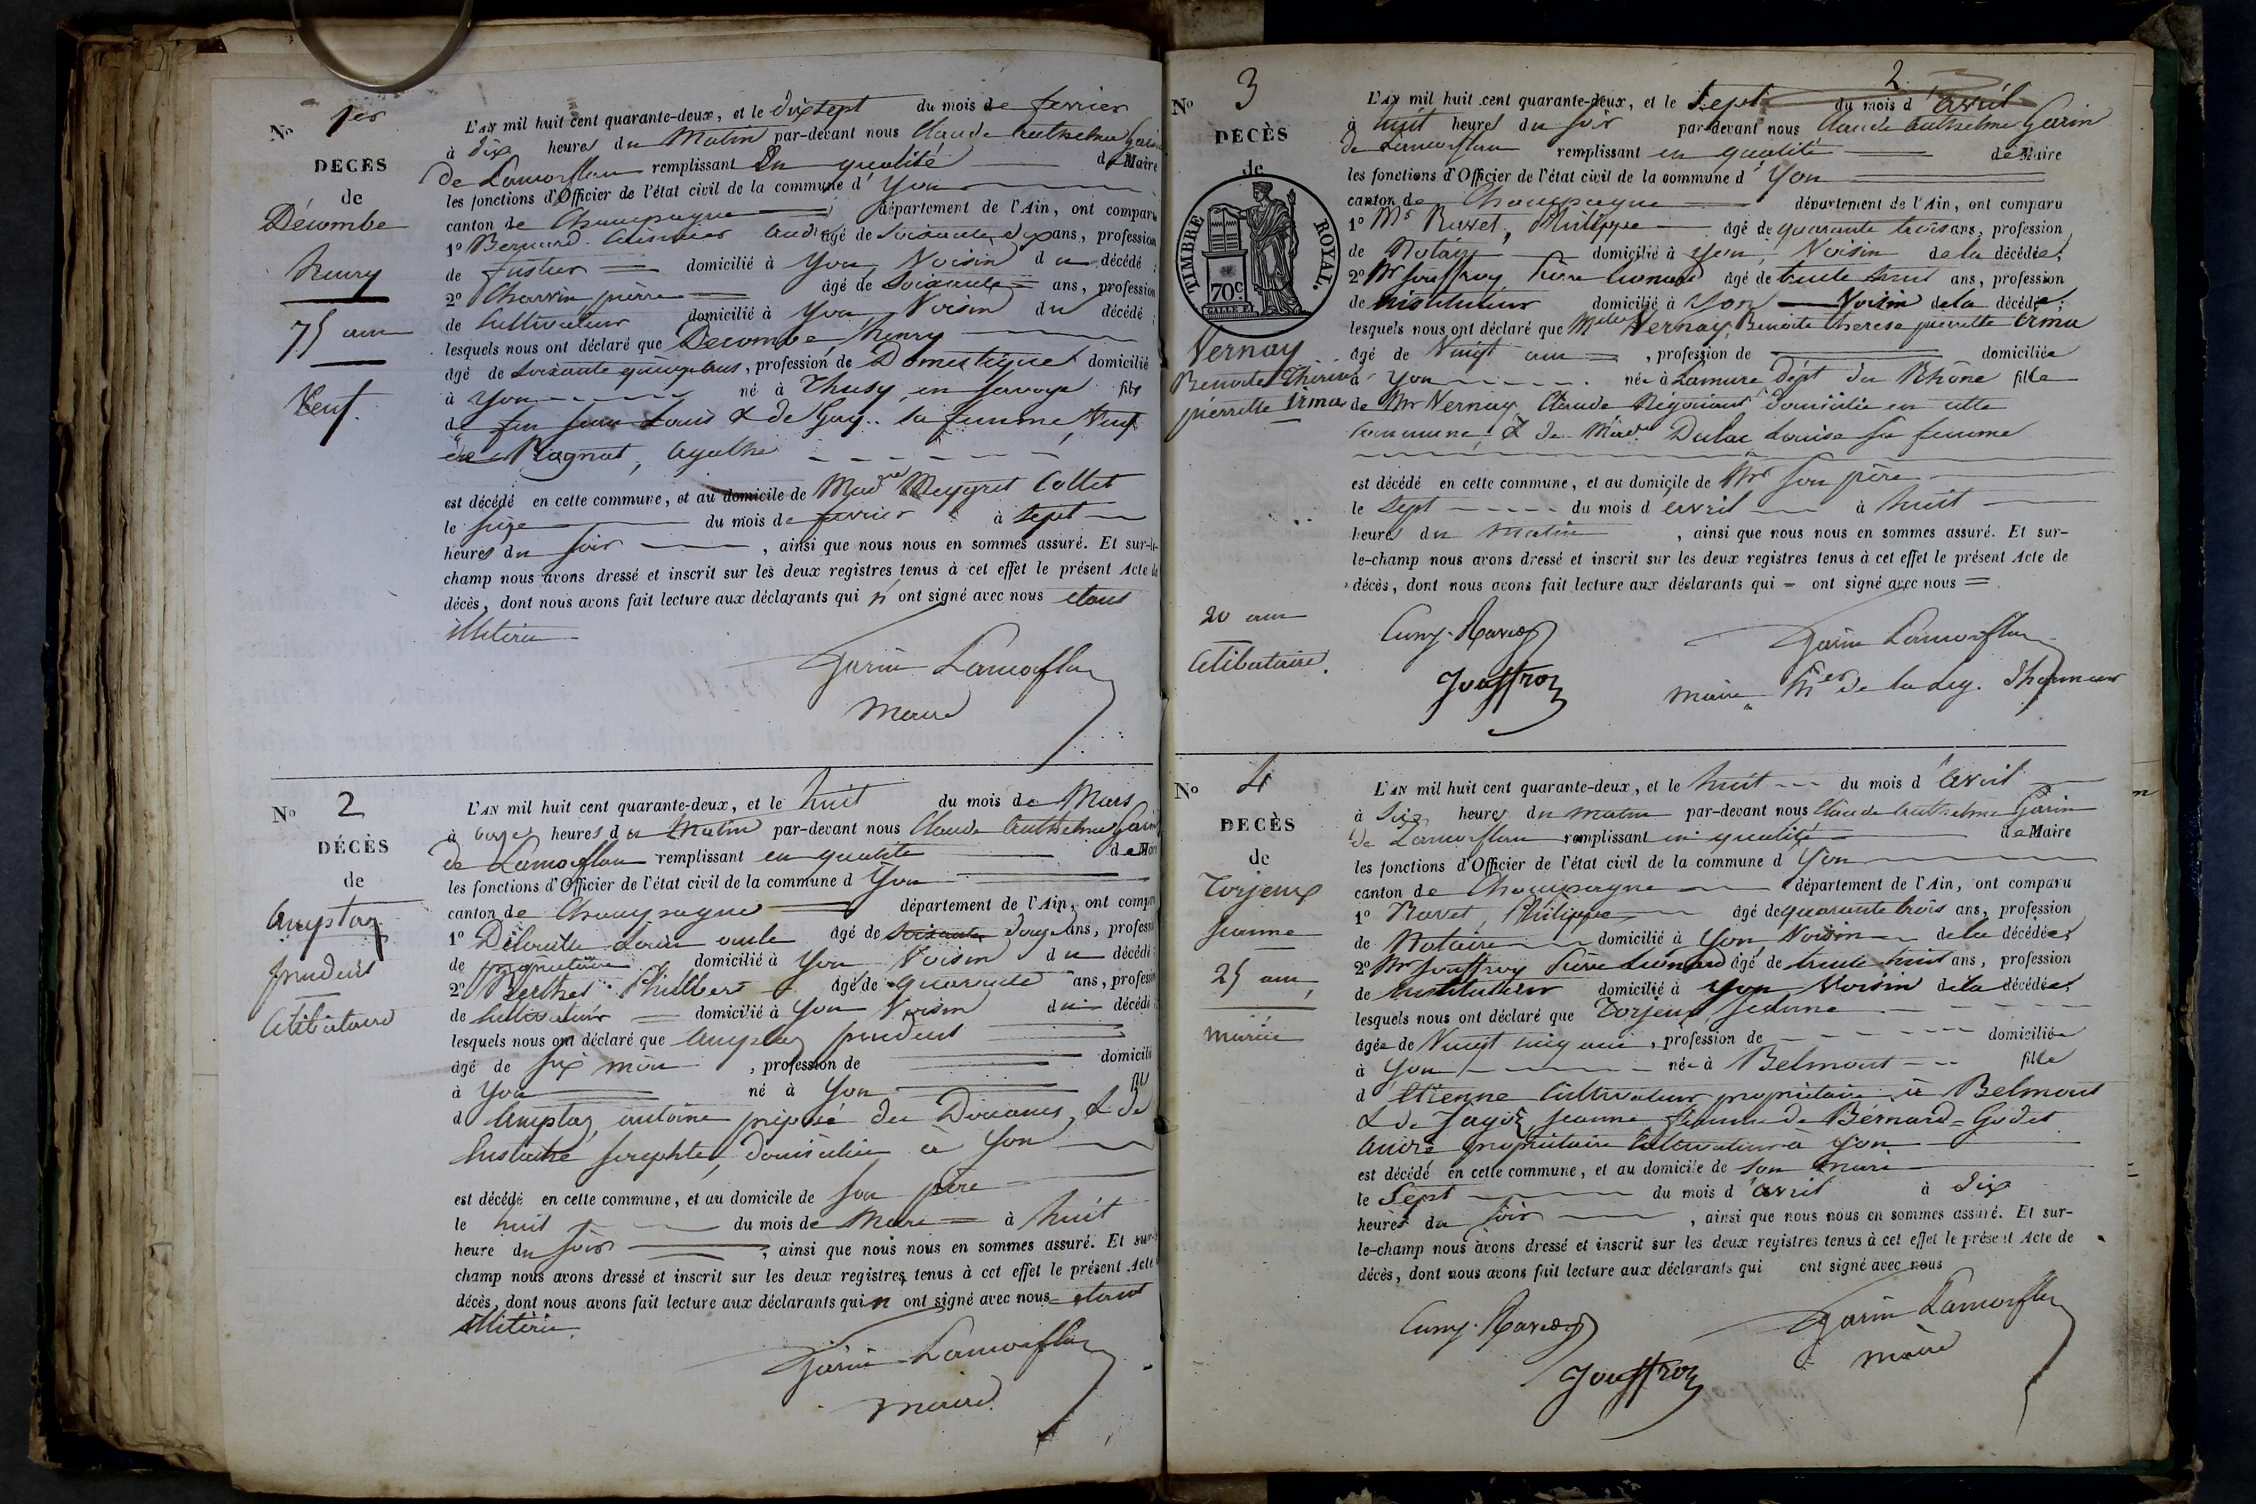 N° 1er
DÉCÈS
de
Décombe
henry
75 ans
Veuf.
L'AN mil huit cent quarante-deux, et le dix sept du mois de fevrier
à dix heures du Matin par-devant nous Claude Anthelme Garin
de Lamorflan remplissant En qualité de Maire
les fonctions d'Officier de l'état civil de la commune d' Yon
canton de Champagne département de l'Ain, ont comparu
1° Bernard âgé de soixante dix ans, profession
de domicilié à Yon Voisin du décédé ;
2° Charvin pierre âgé de soixante ans, profession
de Cultivateur domicilié à Yon Voisin du décédé ;
lesquels nous ont déclaré que Decombe henry
âgé de soixante quinze ans, profession de Domestique domicilié
à Yon né à Thusy, en Savoye fils
de feu Jean Louis & de Gay.. sa femme, Veuf
de Ragnat, Agathe
est décédé en cette commune, et au domicile de Made Meygret Collet
le seize du mois de fevrier à sept
heures du soir , ainsi que nous nous en sommes assuré. Et sur-le-
champ nous avons dressé et inscrit sur les deux registres tenus à cet effet le présent Acte de
décès, dont nous avons fait lecture aux déclarants qui n' ont signé avec nous etant
illitérés
Garin Lamorflan
Maire
N° 2
DÉCÈS
de
Amptaz
prudent
Célibataire
L'AN mil huit cent quarante-deux, et le huit du mois de Mars
à onze heures du Matin par-devant nous Claude Anthelme Garin
de Lamorflan remplissant en qualité de Maire
les fonctions d'Officier de l'état civil de la commune d Yon
canton de Champagne département de l'Ain, ont comparu
1° Louis âgé de soixante douze ans, profession
de propriétaire domicilié à Yon Voisin du décédé
2° Berthet Philibert âgé de quarante ans, profession
de Cultivateur domicilié à Yon Voisin du décédé
lesquels nous ont déclaré que Amptaz prudent
âgé de six mois , profession de domicilié
à Yon né à Yon fils
d Amptaz, antoine préposé des Douanes, & de
Eustache Josephte, domiciliés à Yon
est décédé en cette commune, et au domicile de son père
le huit du mois de Mars à huit
heure du soir , ainsi que nous nous en sommes assuré. Et sur-le-
champ nous avons dressé et inscrit sur les deux registres tenus à cet effet le présent Acte
décès, dont nous avons fait lecture aux déclarants qui n ont signé avec nous etant
illitérés.
Garin Lamorflan
Maire
2
N° 3
DÉCÈS
de
TIMBRE ROYAL.
70c.
Vernay
Benoite Thérèse
pierrette Irma
20 ans
Célibataire.
L'AN mil huit cent quarante-deux, et le Sept du mois d'avril
à huit heures du soir par-devant nous Claude Anthelme Garin
de Lamorflan remplissant en qualité de Maire
les fonctions d'Officier de l'état civil de la commune d' Yon
canton de Champagne département de l'Ain, ont comparu
1° Mr Ravet, Philippe âgé de quarante trois ans, profession
de Notaire domicilié à Yon, Voisin de la décédée ;
2° Mr Jouffroy Pierre Léonard âgé de trente huit ans, profession
de instituteur domicilié à Yon Voisin de la décédée ;
lesquels nous ont déclaré que Melle Vernay, Benoite therese pierrette Irma
âgé de Vingt ans , profession de domiciliée
à Yon née à Lamure Dépt du Rhône fille
de Mr Vernay, Claude Négociant domicilié en cette
commune, & de Made Dulac Louise sa femme
est décédé en cette commune, et au domicile de Mr son père
le sept du mois d avril à huit
heures du Matin , ainsi que nous nous en sommes assuré. Et sur-
le-champ nous avons dressé et inscrit sur les deux registres tenus à cet effet le présent Acte de
décès, dont nous avons fait lecture aux déclarants qui ont signé avec nous
Cuny-Ravet
Garin Lamorflan
Jouffroy
maire Ch.er de la Lég. d'honneur
N° 4
DÉCÈS
de
Torjeux
Jeanne
25 ans,
mariée
L'AN mil huit cent quarante-deux, et le huit du mois d'avril
à Six heures du matin par-devant nous Claude Anthelme Garin
de Lamorflan remplissant en qualité de Maire
les fonctions d'Officier de l'état civil de la commune d' Yon
canton de Champagne département de l'Ain, ont comparu
1° Ravet, Philippe âgé de quarante trois ans, profession
de Notaire domicilié à Yon Voisin de la décédée ;
2° Mr Jouffroy Pierre Léonard âgé de trente huit ans, profession
de instituteur domicilié à Yon Voisin de la décédée ;
lesquels nous ont déclaré que Torjeux Jeanne
âgée de Vingt cinq ans , profession de domiciliée
à Yon née à Belmont fille
d' Etienne Cultivateur propriétaire à Belmont
& de Jeanne femme de Bernard-Godet
André propriétaire Cultivateur à Yon
est décédé en cette commune, et au domicile de son mari
le Sept du mois d'avril à Dix
heures du soir , ainsi que nous nous en sommes assuré. Et sur-
le-champ nous avons dressé et inscrit sur les deux registres tenus à cet effet le présent Acte de
décès, dont nous avons fait lecture aux déclarants qui ont signé avec nous
Cuny-Ravet
Garin Lamorflan
Jouffroy
Maire